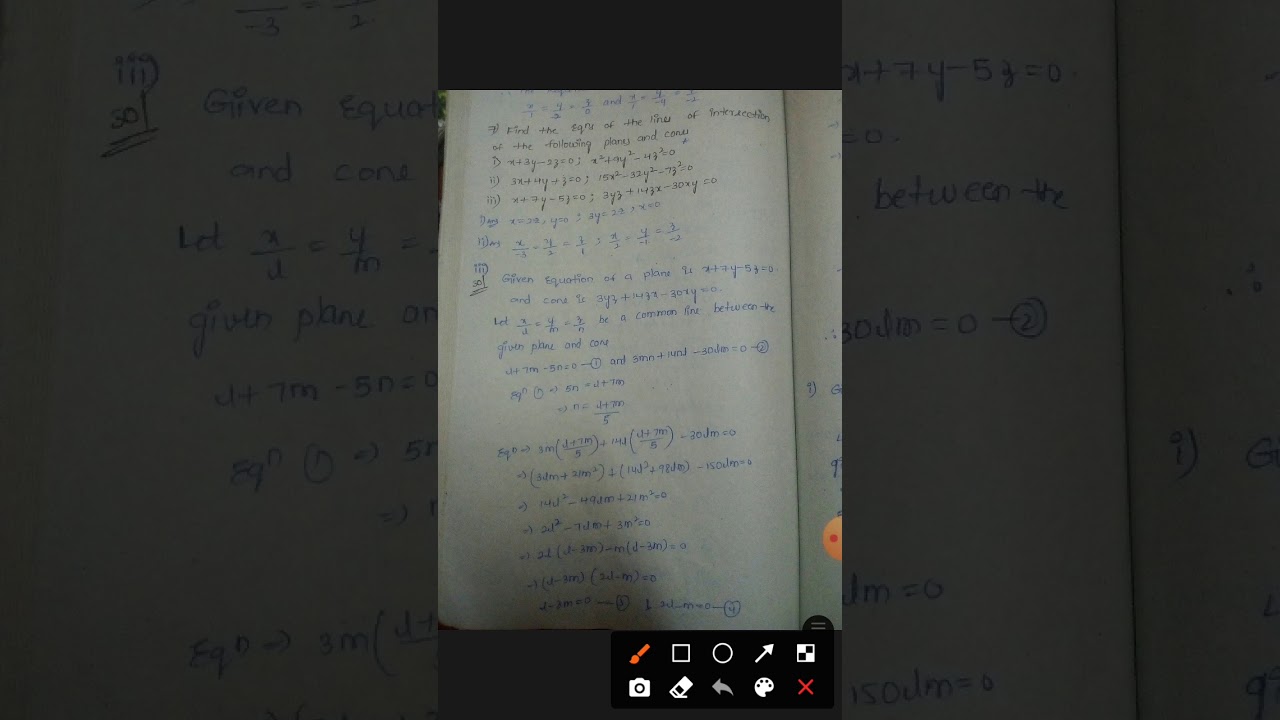 x/1 = y/2 = z/ and x/1 = y/-4 = z/-2
7) Find the Eqns of the lines of intersection
of the following planes and cones
i) x+3y-2z=0 ; x²+9y²-4z²=0
ii) 3x+4y+z=0 ; 15x²-32y²-7z²=0
iii) x+7y-5z=0 ; 3yz+14zx-30xy=0
i) Ans x=2z, y=0 ; 3y=2z, x=0
ii) Ans x/-3 = y/2 = z/1 ; x/2 = y/-1 = z/-2
iii)
sol Given Equation of a plane is x+7y-5z=0.
and cone is 3yz+14zx-30xy=0.
Let x/l = y/m = z/n be a common line between the
given plane and cone
l+7m-5n=0 —① and 3mn+14nl-30lm=0 —②
Eqⁿ ① => 5n = l+7m
=> n = l+7m/5
Eqⁿ => 3m(l+7m/5)+14l(l+7m/5)-30lm=0
=> (3lm+21m²)+(14l²+98lm)-150lm=0
=> 14l²-49lm+21m²=0
=> 2l²-7lm+3m²=0
=> 2l(l-3m)-m(l-3m)=0
=> (l-3m)(2l-m)=0
l-3m=0 —③ & 2l-m=0 —④